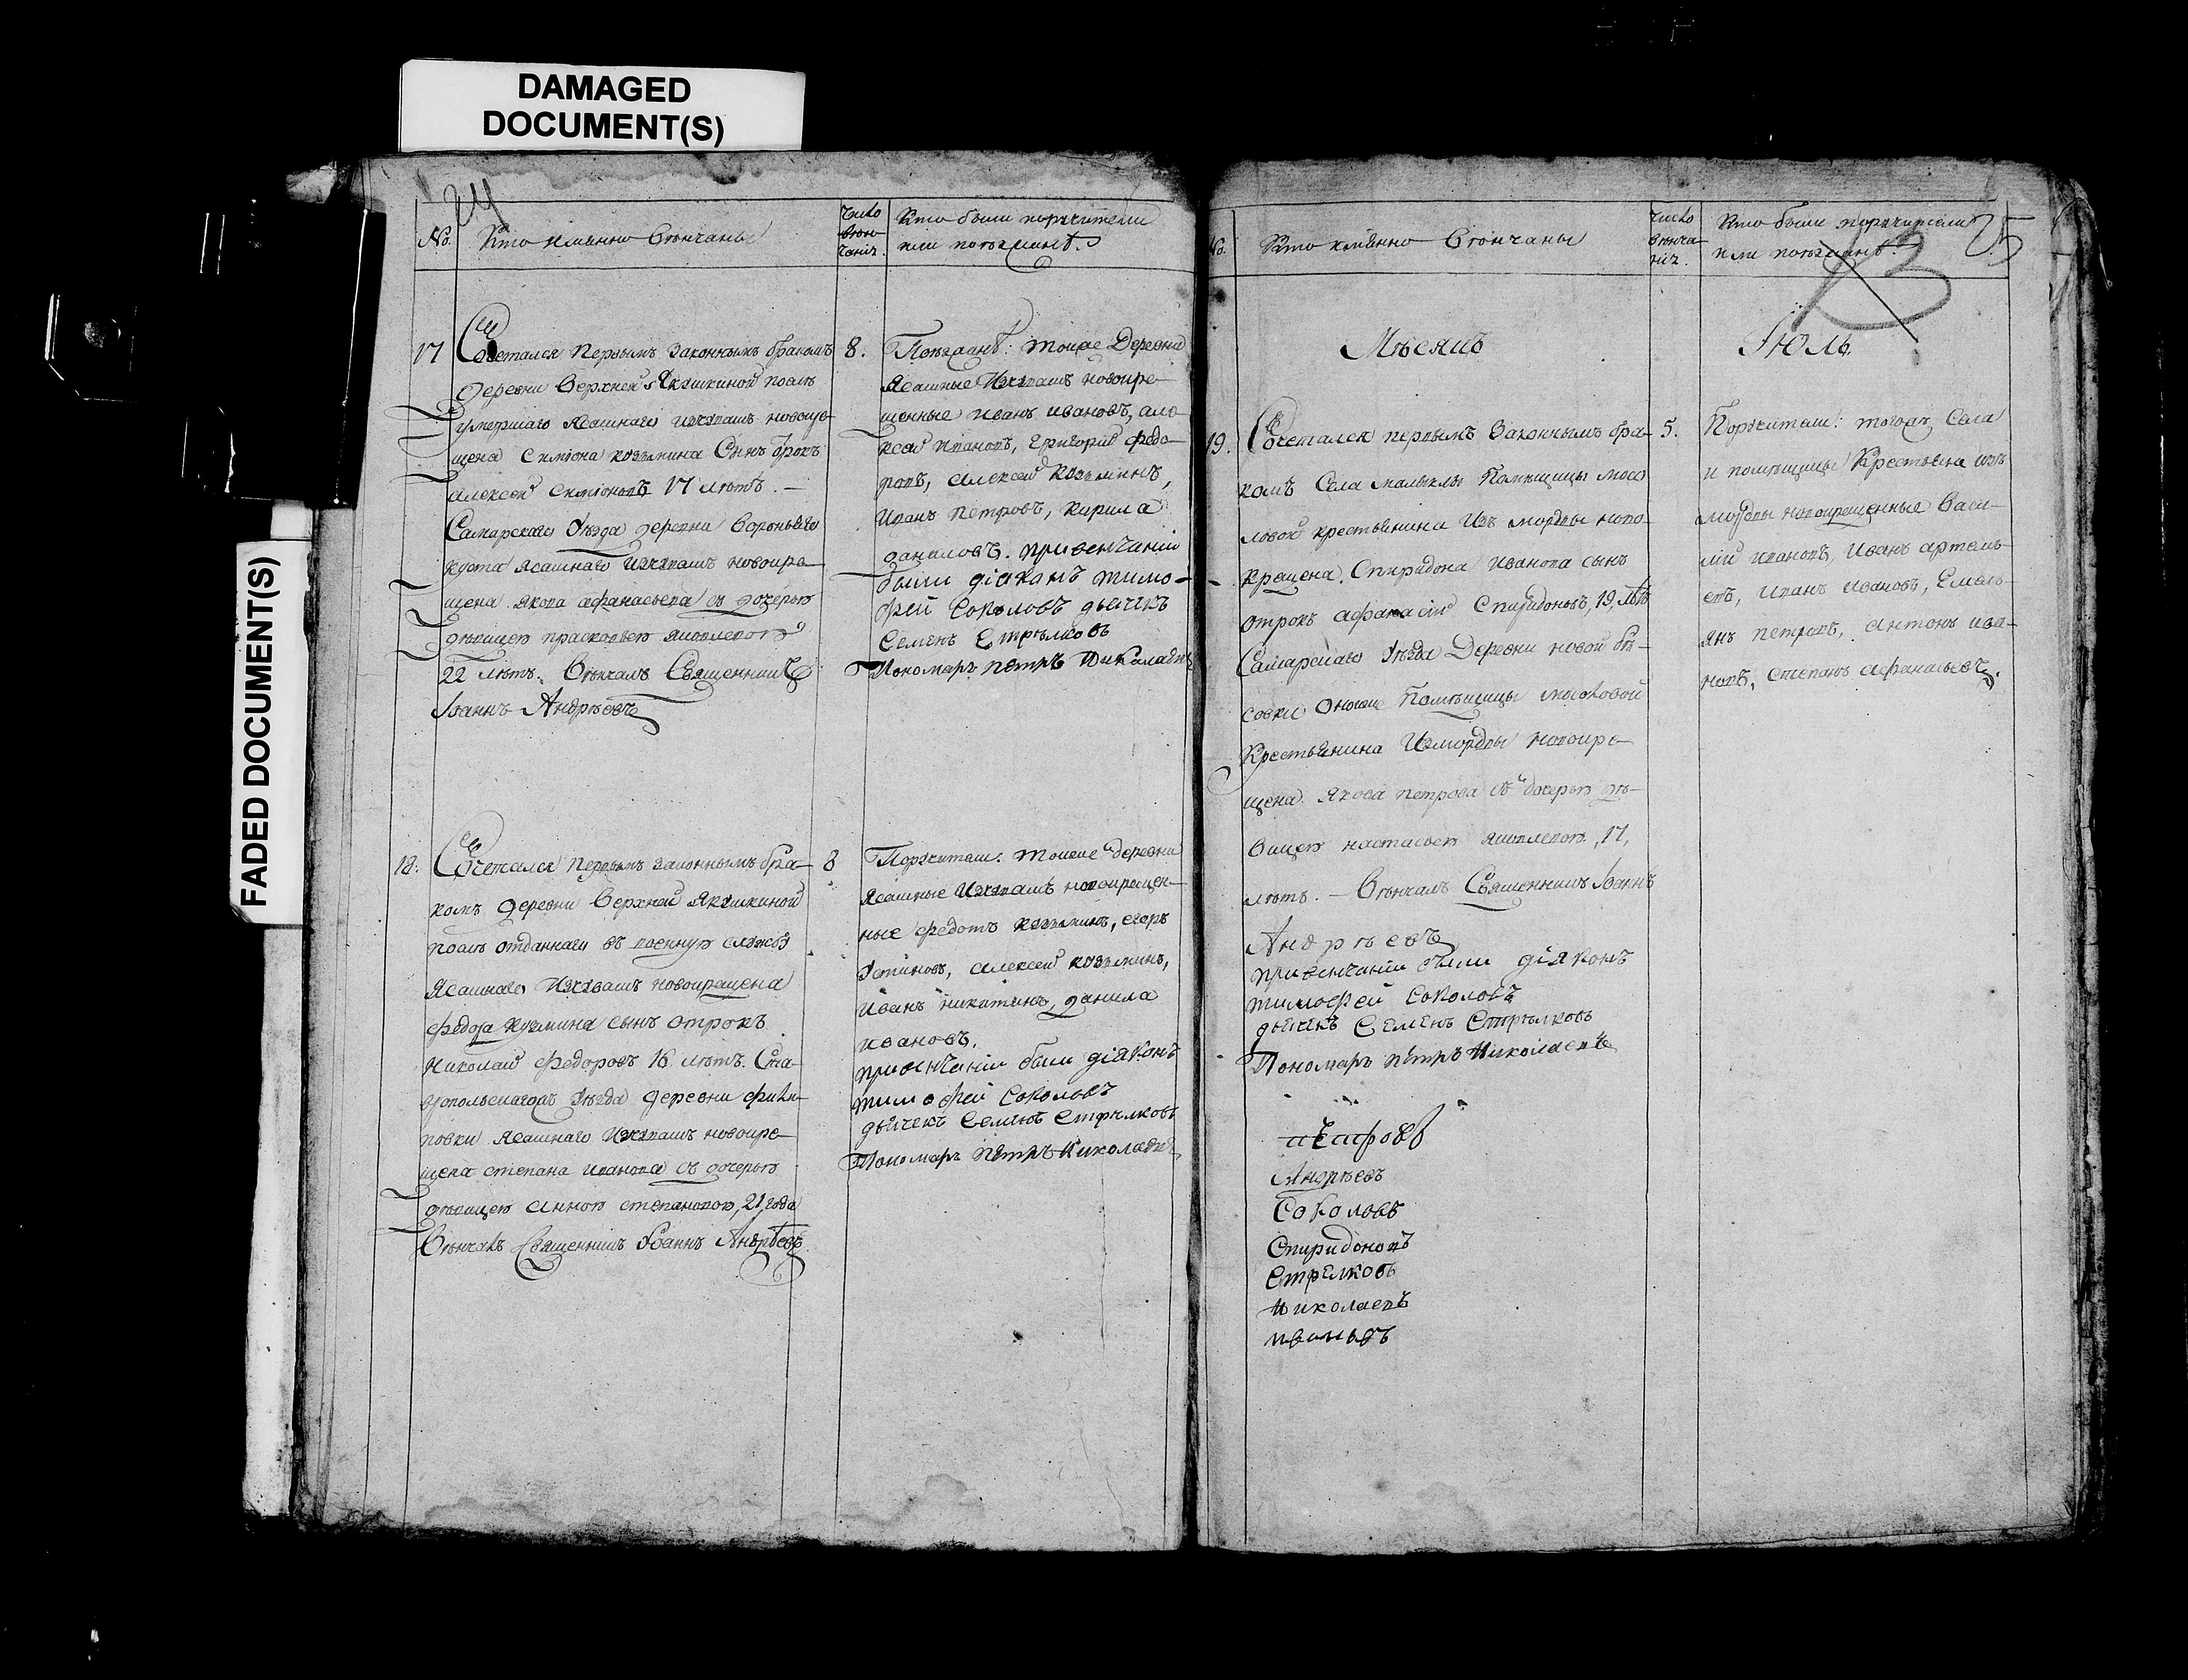 DAMAGED
DOCUMENT(S)
FADED DOCUMENT(S)
24
No.
Кто имянно Венчаны
число
венчанія.
Кто были поручители
или поезжанѣ.
17
Сочетался Первымъ Законнымъ бракомъ
деревни Верхней Якушкиной
умершаго Ясашнаго новокре-
щена Симіона козьмина Сынъ Отрокъ
алексей Симіоновъ 17 лѣтъ. —
Самарского Уѣзда деревни Вороньяго
куста Ясашнаго новокре-
щена якова афанасьева съ дочерью
девицею прасковьею яковлевою
22 лѣтъ. Вѣнчалъ Священникъ
Іоаннъ Андрѣевъ
8.
Поезжанѣ: тоижѣ Деревни
Ясашные новокре-
щенные иванъ ивановъ, але-
ксей ивановъ, григорій федо-
ровъ, алексей козьминъ,
иванъ петровъ, кирила
даниловъ. привенчаніи
были діаконъ тимо-
фей Соколовъ дьячекъ
Семенъ Стрѣлковъ
Пономарь петръ Николаевъ
18.
Сочетался первымъ законнымъ бра-
комъ деревни Верхней Якушкиной
отданнаго въ военную службу
Ясашнаго новокрещена
федора кузмина сынъ отрокъ
Николай Федоровъ 16 лѣтъ. Ста-
Уѣзда деревни фили-
повки Ясашнаго новокре-
щена степана иванова съ дочерью
девицею анною степановою, 21, года
Вѣнчалъ Священникъ Іоаннъ Андрѣевъ
8
Поручители: тоиже деревни
Ясашные новокрещен-
ные федотъ козьминъ, егоръ
Устиновъ, алексей козьминъ,
иванъ никитинъ, данила
ивановъ.
привенчаніи были діяконъ
тимофей Соколовъ
дьячекъ Семенъ Стрѣлковъ
Пономарь петръ Николаевъ
No.
Кто имянно Венчаны
число
венча-
нія.
Кто были поручители
или поезжанѣ.
25
Мѣсяцъ
Іюль.
19.
Сочетался первымъ Законнымъ бра-
комъ Села малыклы Помещицы мосо
ловой крестьянина Изъ мордвы ново-
крещена Спиридона иванова сынъ
отрокъ афанасій Спиридоновъ, 19, лѣтъ
Самарскаго Уѣзда Деревни новой бѣ-
совки Помѣщицы мосоловой
Крестьянина Измордвы новокре-
щена Якова петрова съ дочерью дѣ-
вицею настасьею яковлевою, 17,
лѣтъ. — Вѣнчалъ Священникъ Іоаннъ
Андрѣевъ
привенчаніи были діяконъ
тимофей Соколовъ
дьячекъ Семенъ Стрѣлковъ
Пономарь петръ Николаевъ
5.
Поручители: тогожъ Села
и помѣщицы Крестьяна изъ
мордвы новокрещенные Васи-
лій ивановъ, Иванъ артемь-
евъ, иванъ ивановъ, Емель-
янъ петровъ, Антонъ ива-
новъ, степанъ афанасьевъ.
Петровъ
Андрѣевъ
Соколовъ
Спиридоновъ
Стрелковъ
Николаевъ